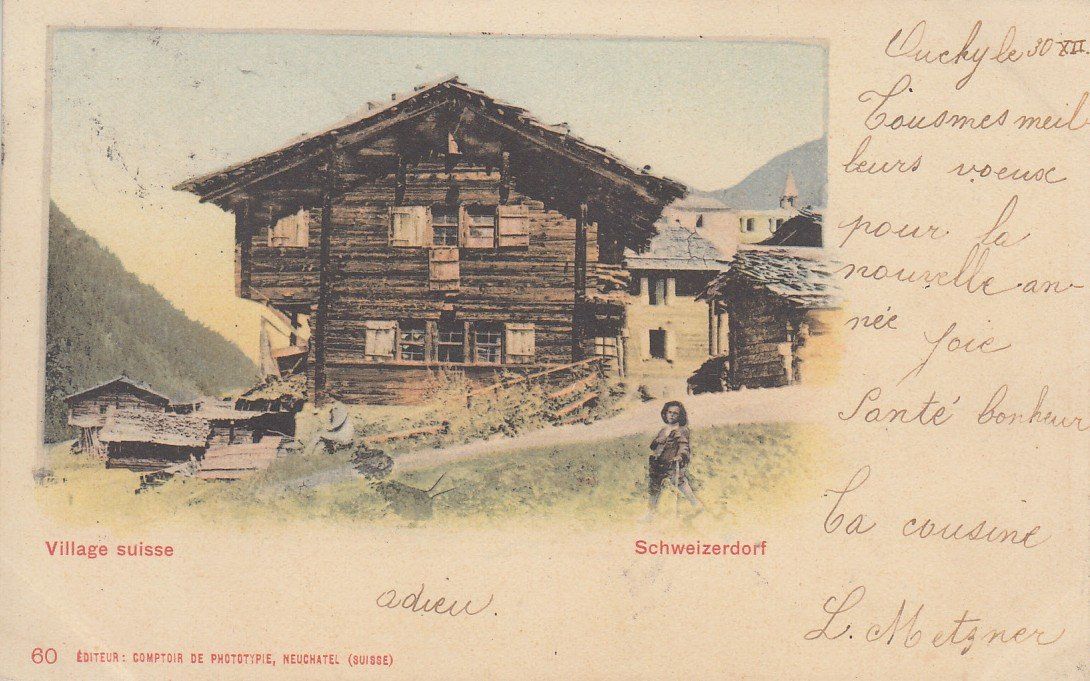 Ouchy le 30 XII.
Tous mes meil-
leurs voeux
pour la
nouvelle an-
née
Joie
Santé bonheur
Ta cousine
L. Metzner
adieu.
Village suisse
Schweizerdorf
60 ÉDITEUR: COMPTOIR DE PHOTOTYPIE, NEUCHATEL (SUISSE)